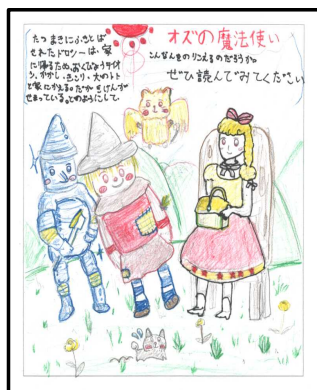 たつまきにふきとば
されたドロシーは、家
に帰るため、おくびょうライオン、
かかし、きこり、犬のトト
と家にかえる。だが きけんが
せまっている。どのようにして、
オズの魔法使い
こんなんをのりこえるのだろうか。
ぜひ読んでみてください